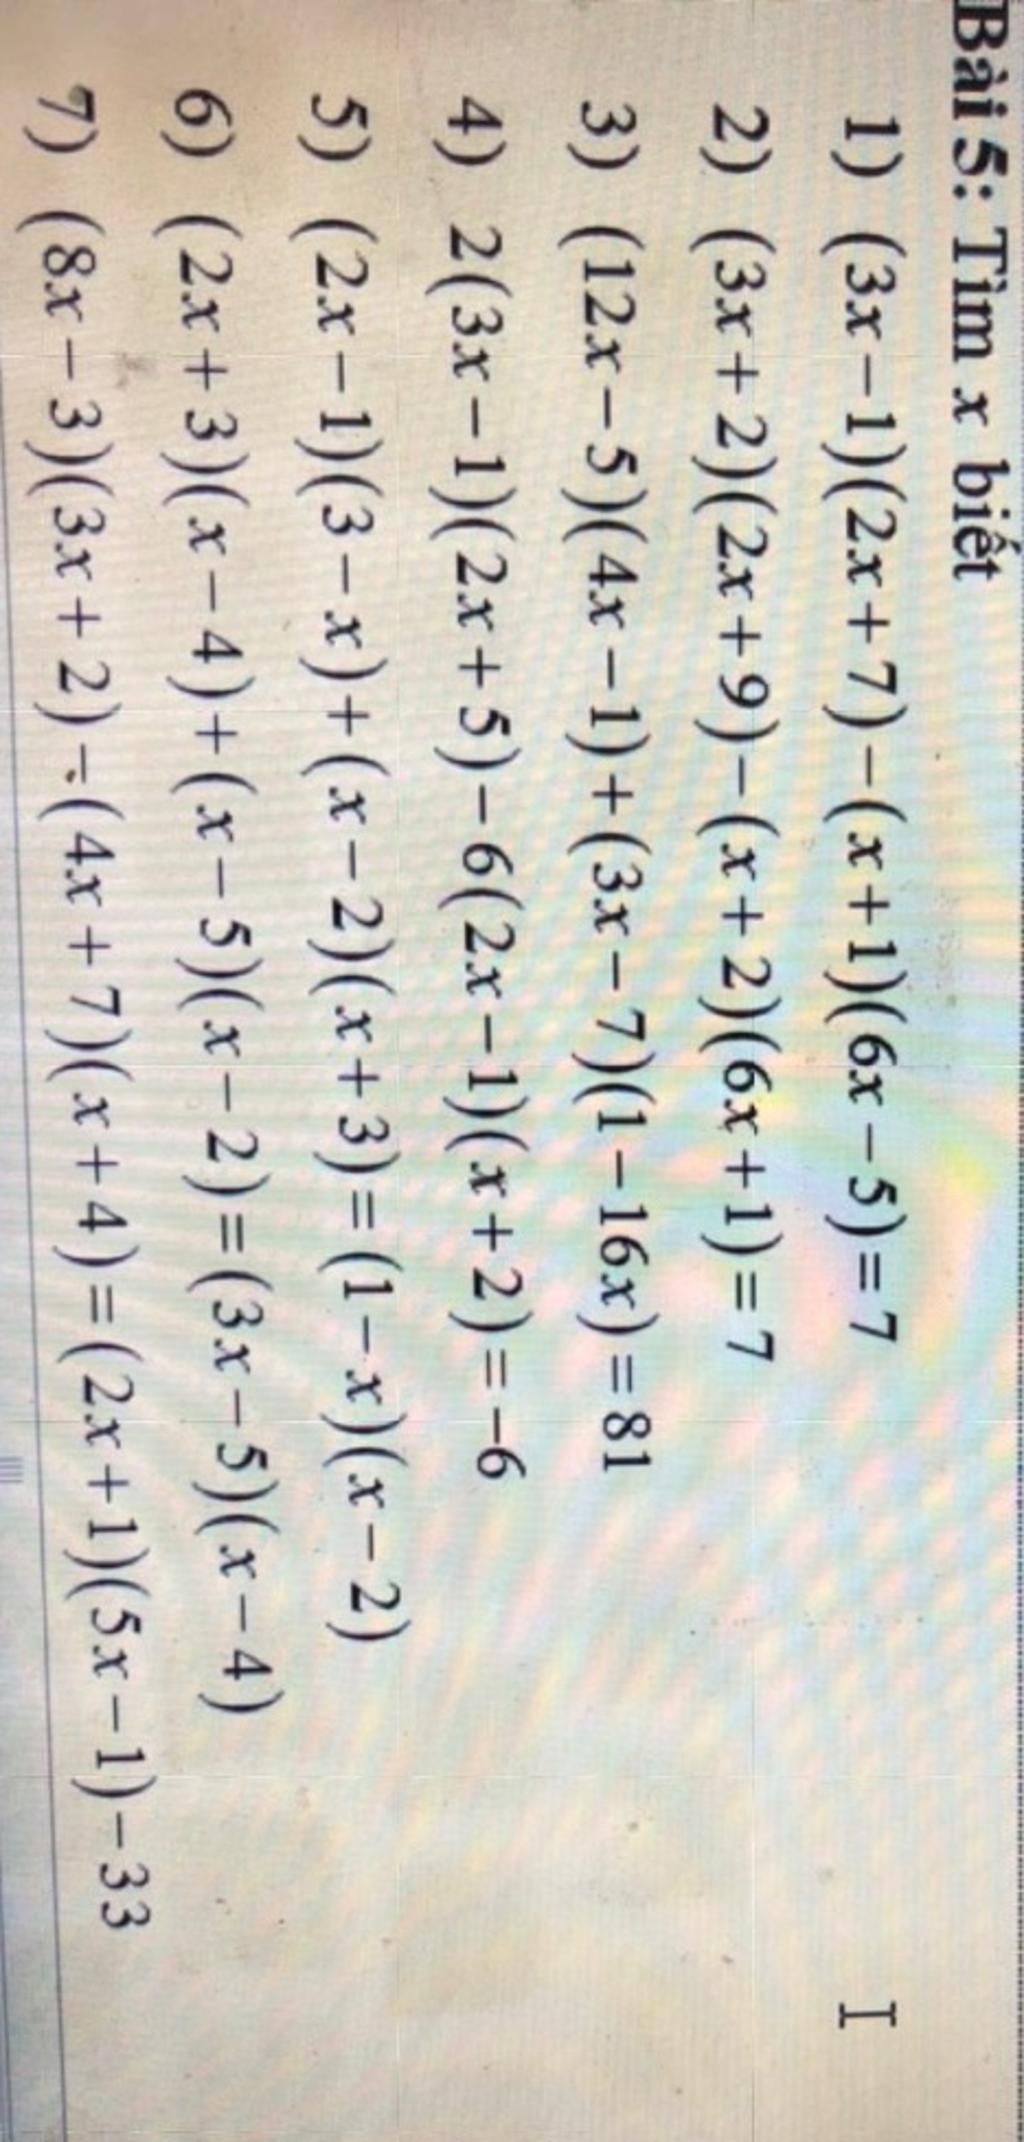 Bài 5: Tìm x biết
1) (3x−1)(2x+7)−(x+1)(6x−5)=7
2) (3x+2)(2x+9)−(x+2)(6x+1)=7
3) (12x−5)(4x−1)+(3x−7)(1−16x)=81
4) 2(3x−1)(2x+5)−6(2x−1)(x+2)=−6
5) (2x−1)(3−x)+(x−2)(x+3)=(1−x)(x−2)
6) (2x+3)(x−4)+(x−5)(x−2)=(3x−5)(x−4)
7) (8x−3)(3x+2)−(4x+7)(x+4)=(2x+1)(5x−1)−33